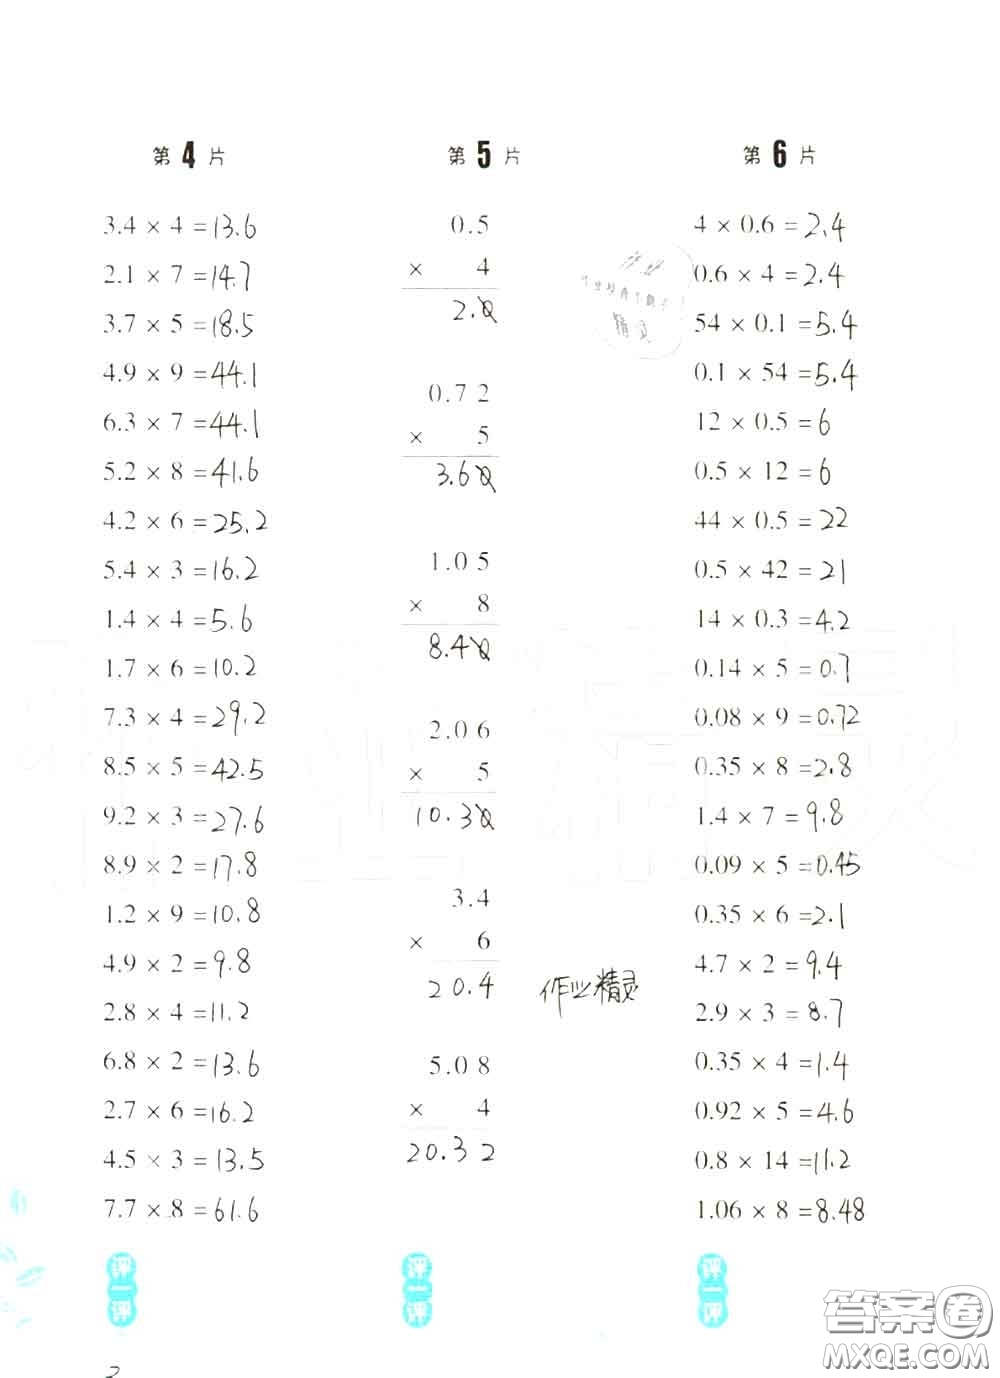 第4片
3.4 × 4 = 13.6
2.1 × 7 = 14.7
3.7 × 5 = 18.5
4.9 × 9 = 44.1
6.3 × 7 = 44.1
5.2 × 8 = 41.6
4.2 × 6 = 25.2
5.4 × 3 = 16.2
1.4 × 4 = 5.6
1.7 × 6 = 10.2
7.3 × 4 = 29.2
8.5 × 5 = 42.5
9.2 × 3 = 27.6
8.9 × 2 = 17.8
1.2 × 9 = 10.8
4.9 × 2 = 9.8
2.8 × 4 = 11.2
6.8 × 2 = 13.6
2.7 × 6 = 16.2
4.5 × 3 = 13.5
7.7 × 8 = 61.6
评一评
第5片
0.5
× 4
2.0
0.72
× 5
3.60
1.05
× 8
8.40
2.06
× 5
10.30
3.4
× 6
20.4
作业精灵
5.08
× 4
20.32
评一评
第6片
4 × 0.6 = 2.4
0.6 × 4 = 2.4
54 × 0.1 = 5.4
0.1 × 54 = 5.4
12 × 0.5 = 6
0.5 × 12 = 6
44 × 0.5 = 22
0.5 × 42 = 21
14 × 0.3 = 4.2
0.14 × 5 = 0.7
0.08 × 9 = 0.72
0.35 × 8 = 2.8
1.4 × 7 = 9.8
0.09 × 5 = 0.45
0.35 × 6 = 2.1
4.7 × 2 = 9.4
2.9 × 3 = 8.7
0.35 × 4 = 1.4
0.92 × 5 = 4.6
0.8 × 14 = 11.2
1.06 × 8 = 8.48
评一评
答案圈
MXQE.COM
2